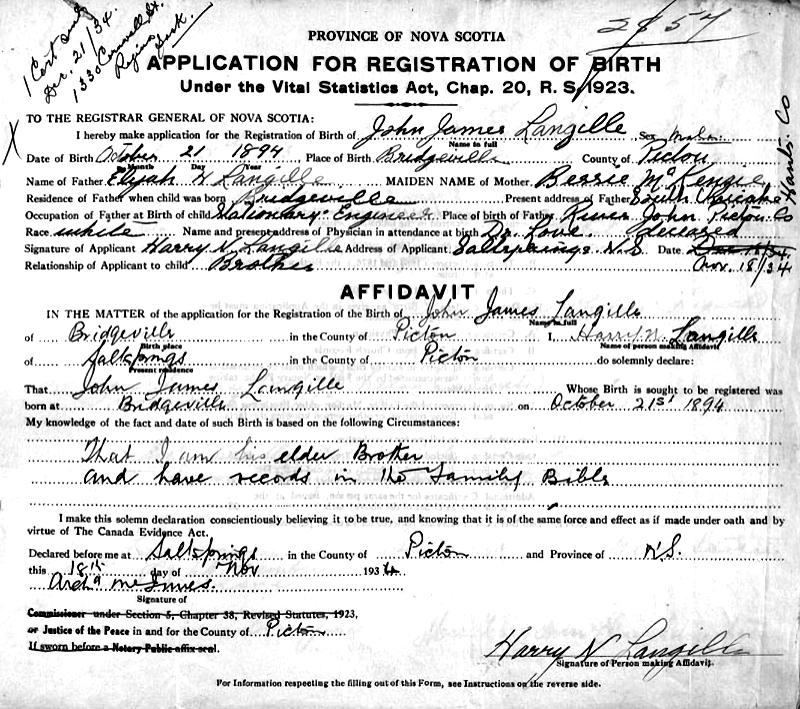 1 Cert only
Dec. 21/34.
1330 Cornwall St.
Regina
Sask.
2857
PROVINCE OF NOVA SCOTIA
APPLICATION FOR REGISTRATION OF BIRTH
Under the Vital Statistics Act, Chap. 20, R. S. 1923.
TO THE REGISTRAR GENERAL OF NOVA SCOTIA:
X
I hereby make application for the Registration of Birth of John James Langille Sex Male
Name in full
Date of Birth October 21 1894 Place of Birth Bridgeville County of Pictou
Month Day Year
Name of Father Elijah W Langille MAIDEN NAME of Mother Bessie McKenzie
Hants. Co
Residence of Father when child was born Bridgeville Present address of Father South
Occupation of Father at Birth of child Stationary Engineer Place of birth of Father River John Pictou Co
Race white Name and present address of Physician in attendance at birth Dr. Love. deceased
Signature of Applicant Harry N Langille Address of Applicant Saltsprings N.S. Date Dec 18/34
Relationship of Applicant to child Brother Nov. 18/34
AFFIDAVIT
IN THE MATTER of the application for the Registration of the Birth of John James Langille
Name in full
of Bridgeville in the County of Pictou I, Harry N. Langille
Birth place Name of person making Affidavit
of Saltsprings in the County of Pictou do solemnly declare:
Present residence
That John James Langille Whose Birth is sought to be registered was
born at Bridgeville on October 21st 1894
My knowledge of the fact and date of such Birth is based on the following Circumstances:
That I am his elder Brother
and have records in the Family Bible
I make this solemn declaration conscientiously believing it to be true, and knowing that it is of the same force and effect as if made under oath and by
virtue of The Canada Evidence Act.
Declared before me at Saltsprings in the County of Pictou and Province of N.S.
this 18th day of Nov 1934
Archd McInnes.
Signature of
Commissioner under Section 5, Chapter 38, Revised Statutes, 1923,
or Justice of the Peace in and for the County of Pictou
If sworn before a Notary Public affix seal.
Harry N Langille
Signature of Person making Affidavit.
For Information respecting the filling out of this Form, see Instructions on the reverse side.